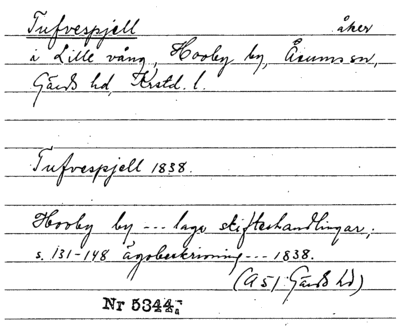 Tufvespjell åker
i Lille vång, Hovby by, Åsums sn,
Gärds hd, Krstd. l.
Tufvespjell 1838.
Hovby by --- laga skifteshandlingar;
s. 131-148 ägobeskrivning --- 1838.
(A 51 Gärds hd)
Nr 5344